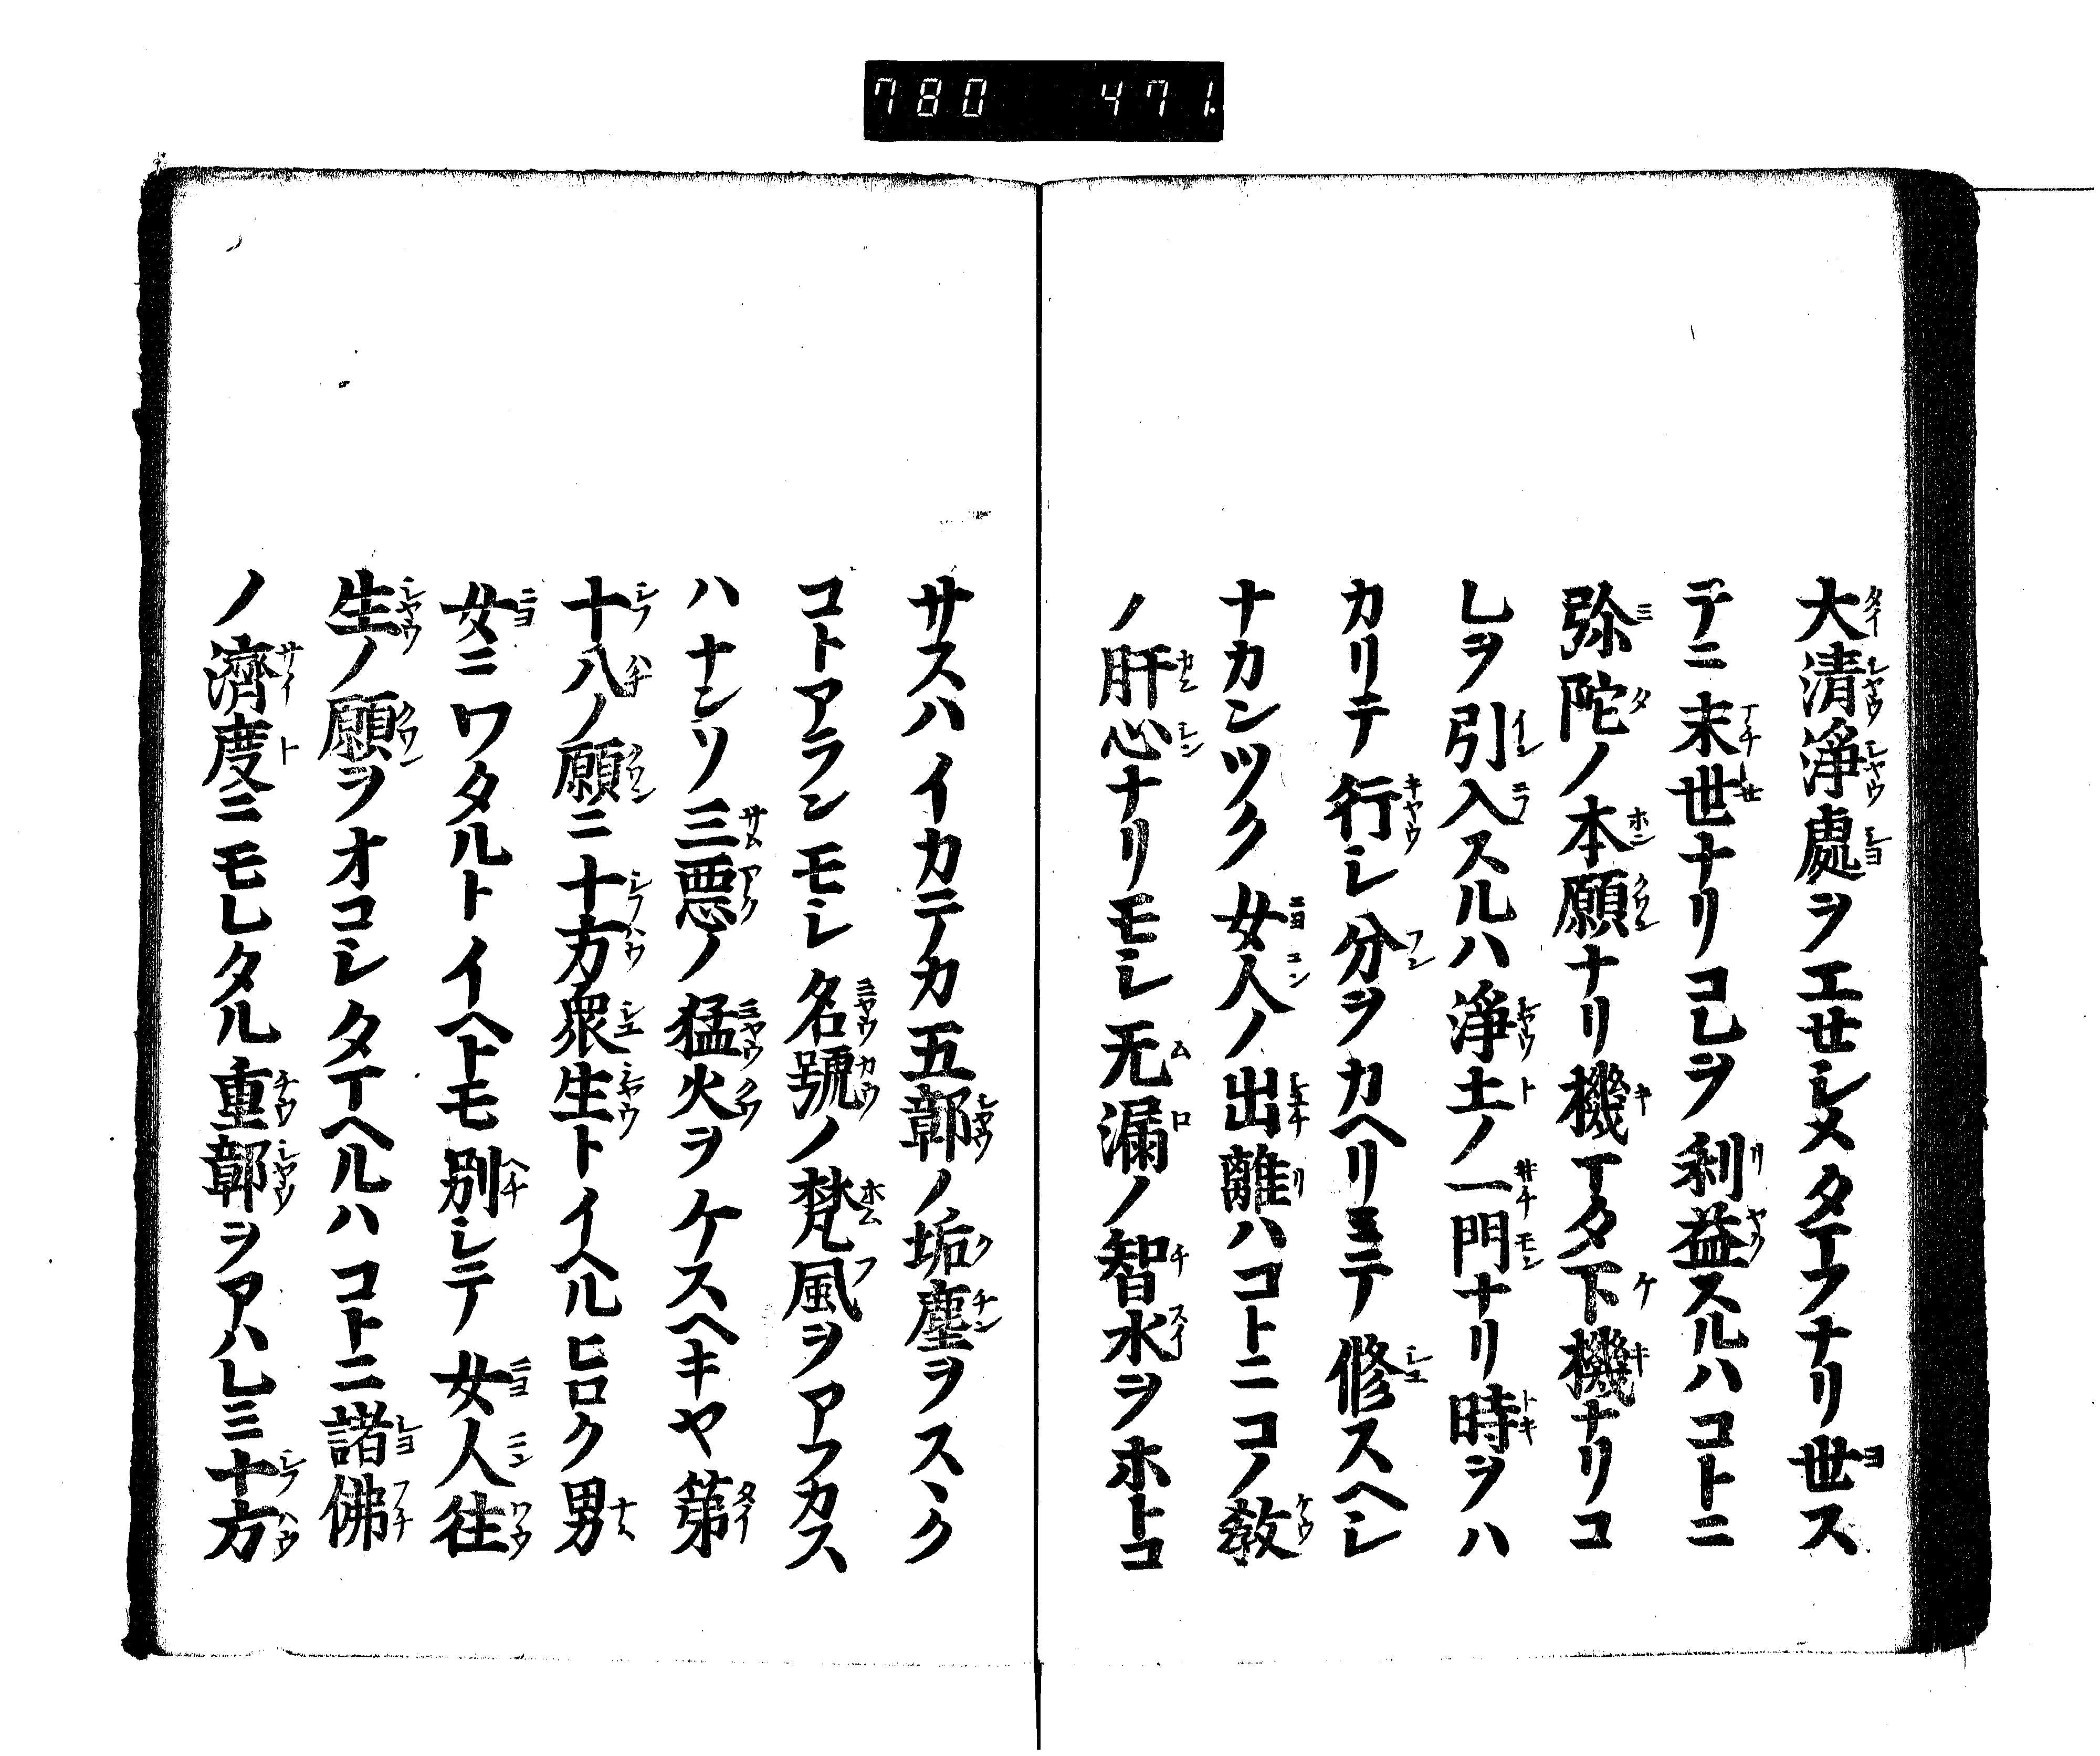 780 471
大清淨處ヲエセシメタマフナリ世ス
テニ末世ナリコレヲ利益スルハコトニ
弥陀ノ本願ナリ機マタ下機ナリコ
レヲ引入スルハ淨土ノ一門ナリ時ヲハ
カリテ行シ分ヲカヘリミテ修スヘシ
ナカンツク女人ノ出離ハコトニコノ教
ノ肝心ナリモシ无漏ノ智水ヲホトコ
サスハイカテカ五鄣ノ垢塵ヲスヽク
コトアランモシ名號ノ梵風ヲアフカス
ハナンソ三惡ノ猛火ヲケスヘキヤ第
十八ノ願ニ十方衆生トイヘルヒロク男
女ニワタルトイヘトモ別シテ女人往
生ノ願ヲオコシタマヘルハコトニ諸佛
ノ濟度ニモレタル重鄣ヲアハレミ十方